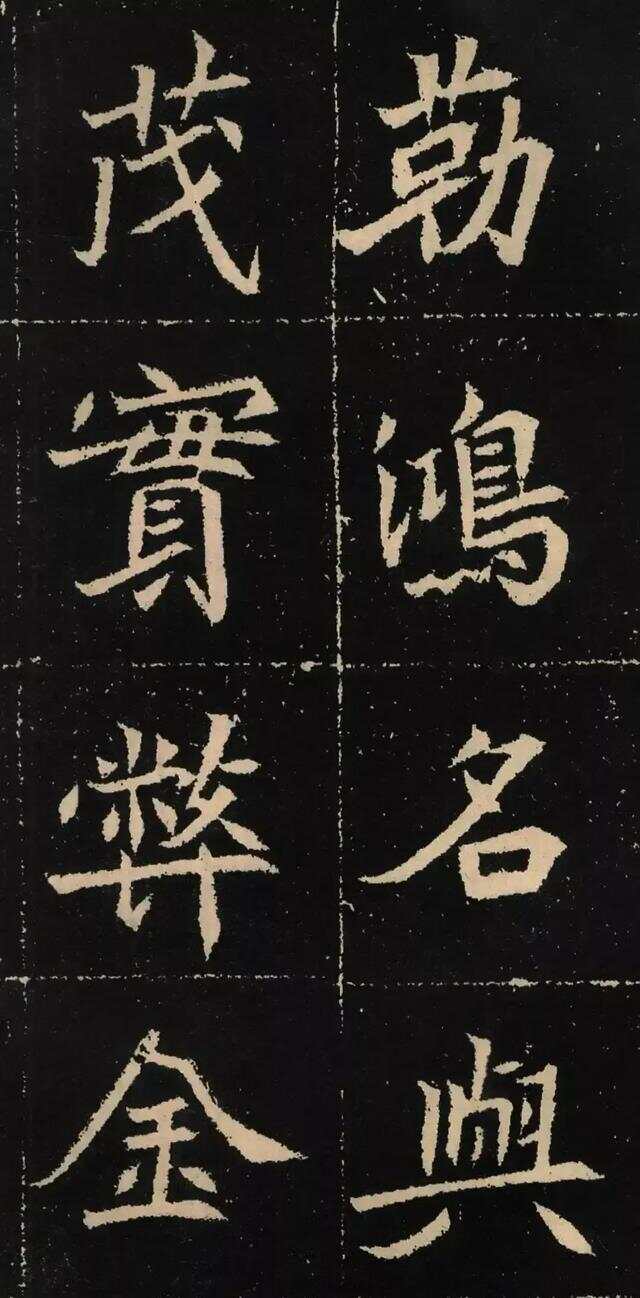 勒鴻名與
茂實弊金